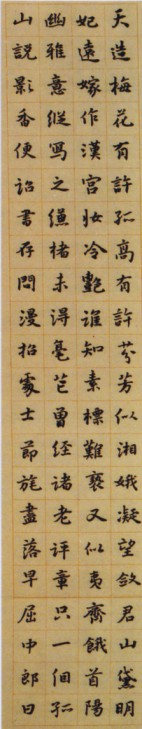 天造梅花有許孤高有許芬芳似湘娥凝望斂君山黛明
妃遠嫁作漢宮妝冷艷誰知素標難褻又似夷齊餓首陽
幽雅意縱寫之縑楮未得毫芒曾經諸老評章只一個孤
山說影香便詔書存問漫招處士節旄盡落早屈中郎日